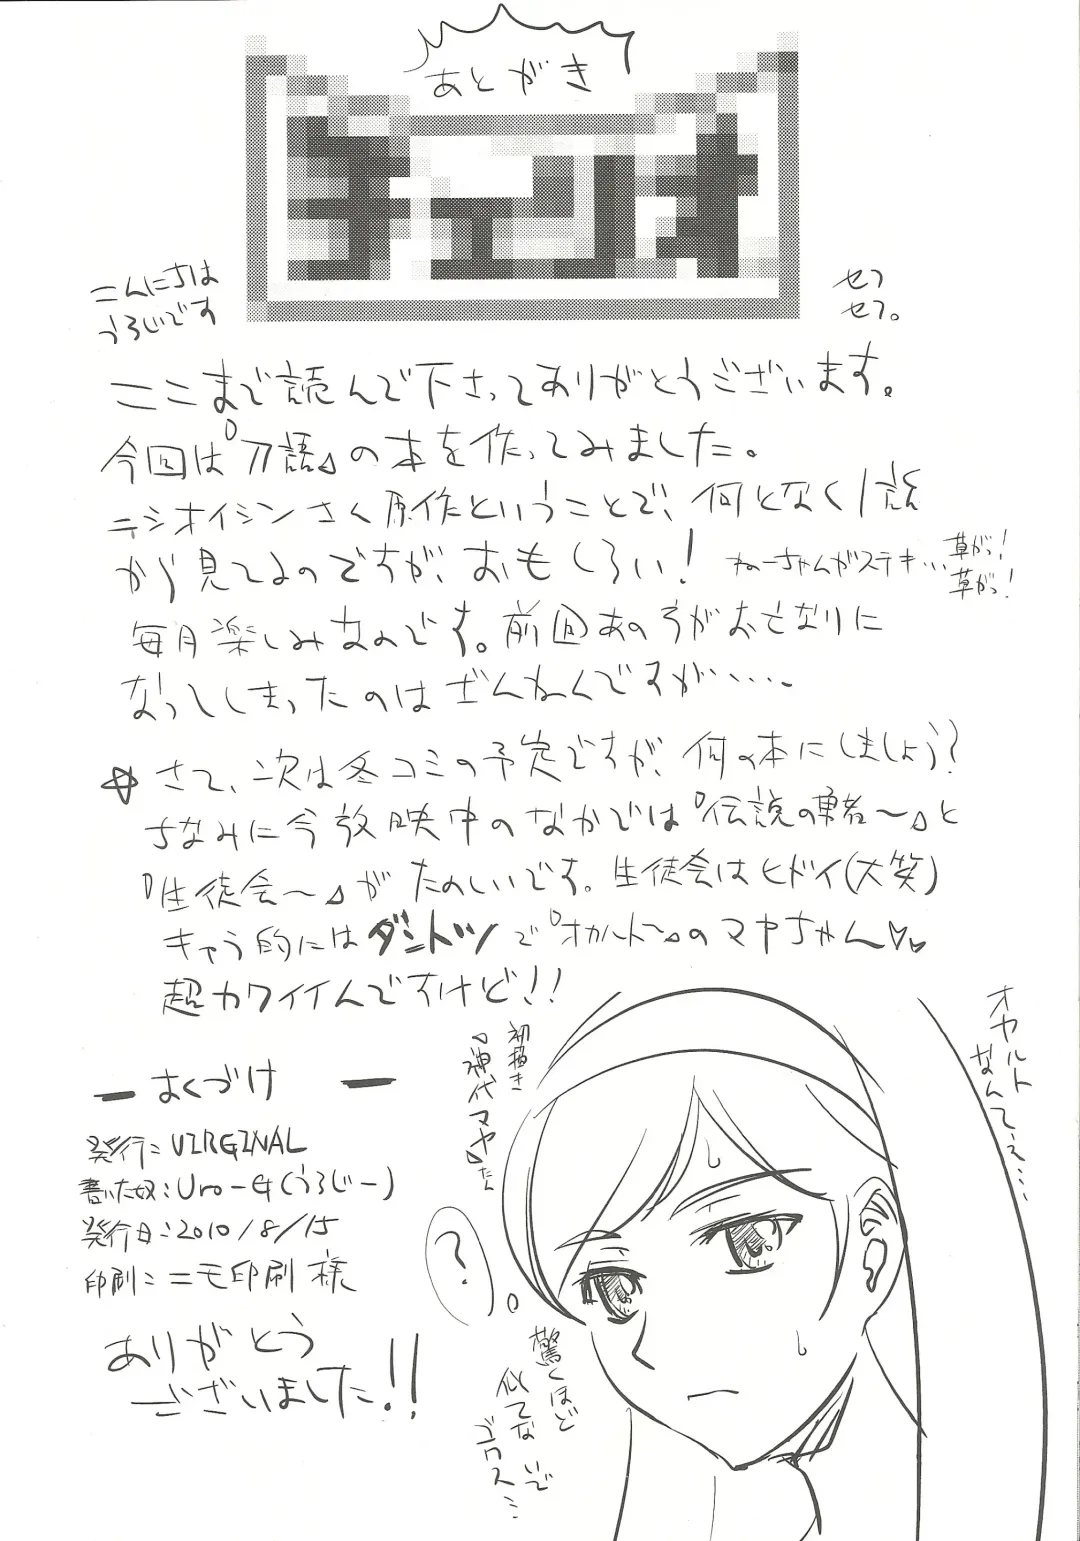 あとがき
チェリオ
こんにちは
うろじです
セフ
セフ。
ここまで読んで下さってありがとうございます。
今回は『刀語』の本を作ってみました。
ニシオイシンさく原作ということで、何となく1話
から見てるのですが、おもしろい！
ねーちゃんがステキ…
草がっ！
草がっ！
毎月楽しみなのです。前回あの
になってしまったのはざんねんですが……
☆さて、次は冬コミの予定ですが、何の本にしましょう？
ちなみに今放映中のなかでは『伝説の勇者〜』と
『生徒会〜』がたのしいです。生徒会はヒドイ(大笑)
キャラ的にはダントツで『オカルト〜』のマヤちゃん♡♡
超カワイイんですけど！！
オカルト
なんてぇ…
初描き
『神代マヤ』たん
？
驚くほど
似てないで
ゴワス…
ー おくづけ ー
発行：VIRGINAL
書いた奴：Uro-G(うろじー)
発行日：2010/8/15
印刷：ニモ印刷様
ありがとう
ございました！！